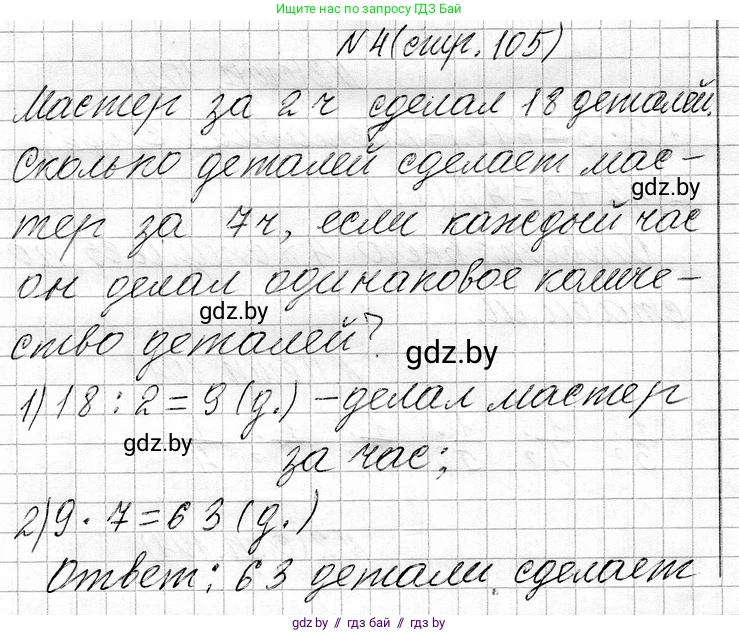 Ищите нас по запросу ГДЗ БАЙ
N 4 (стр. 105)
Мастер за 2 ч сделал 18 деталей.
Сколько деталей сделает мас-
gdz.by
тер за 7ч, если каждый час
он делал одинаковое количе-
gdz.by
ство деталей?
gdz.by
1) 18 : 2 = 9 (д.) – делал мастер
gdz.by
за час;
2) 9 · 7 = 63 (д.)
Ответ: 63 детали сделает
gdz.by // гдз бай // гдз by